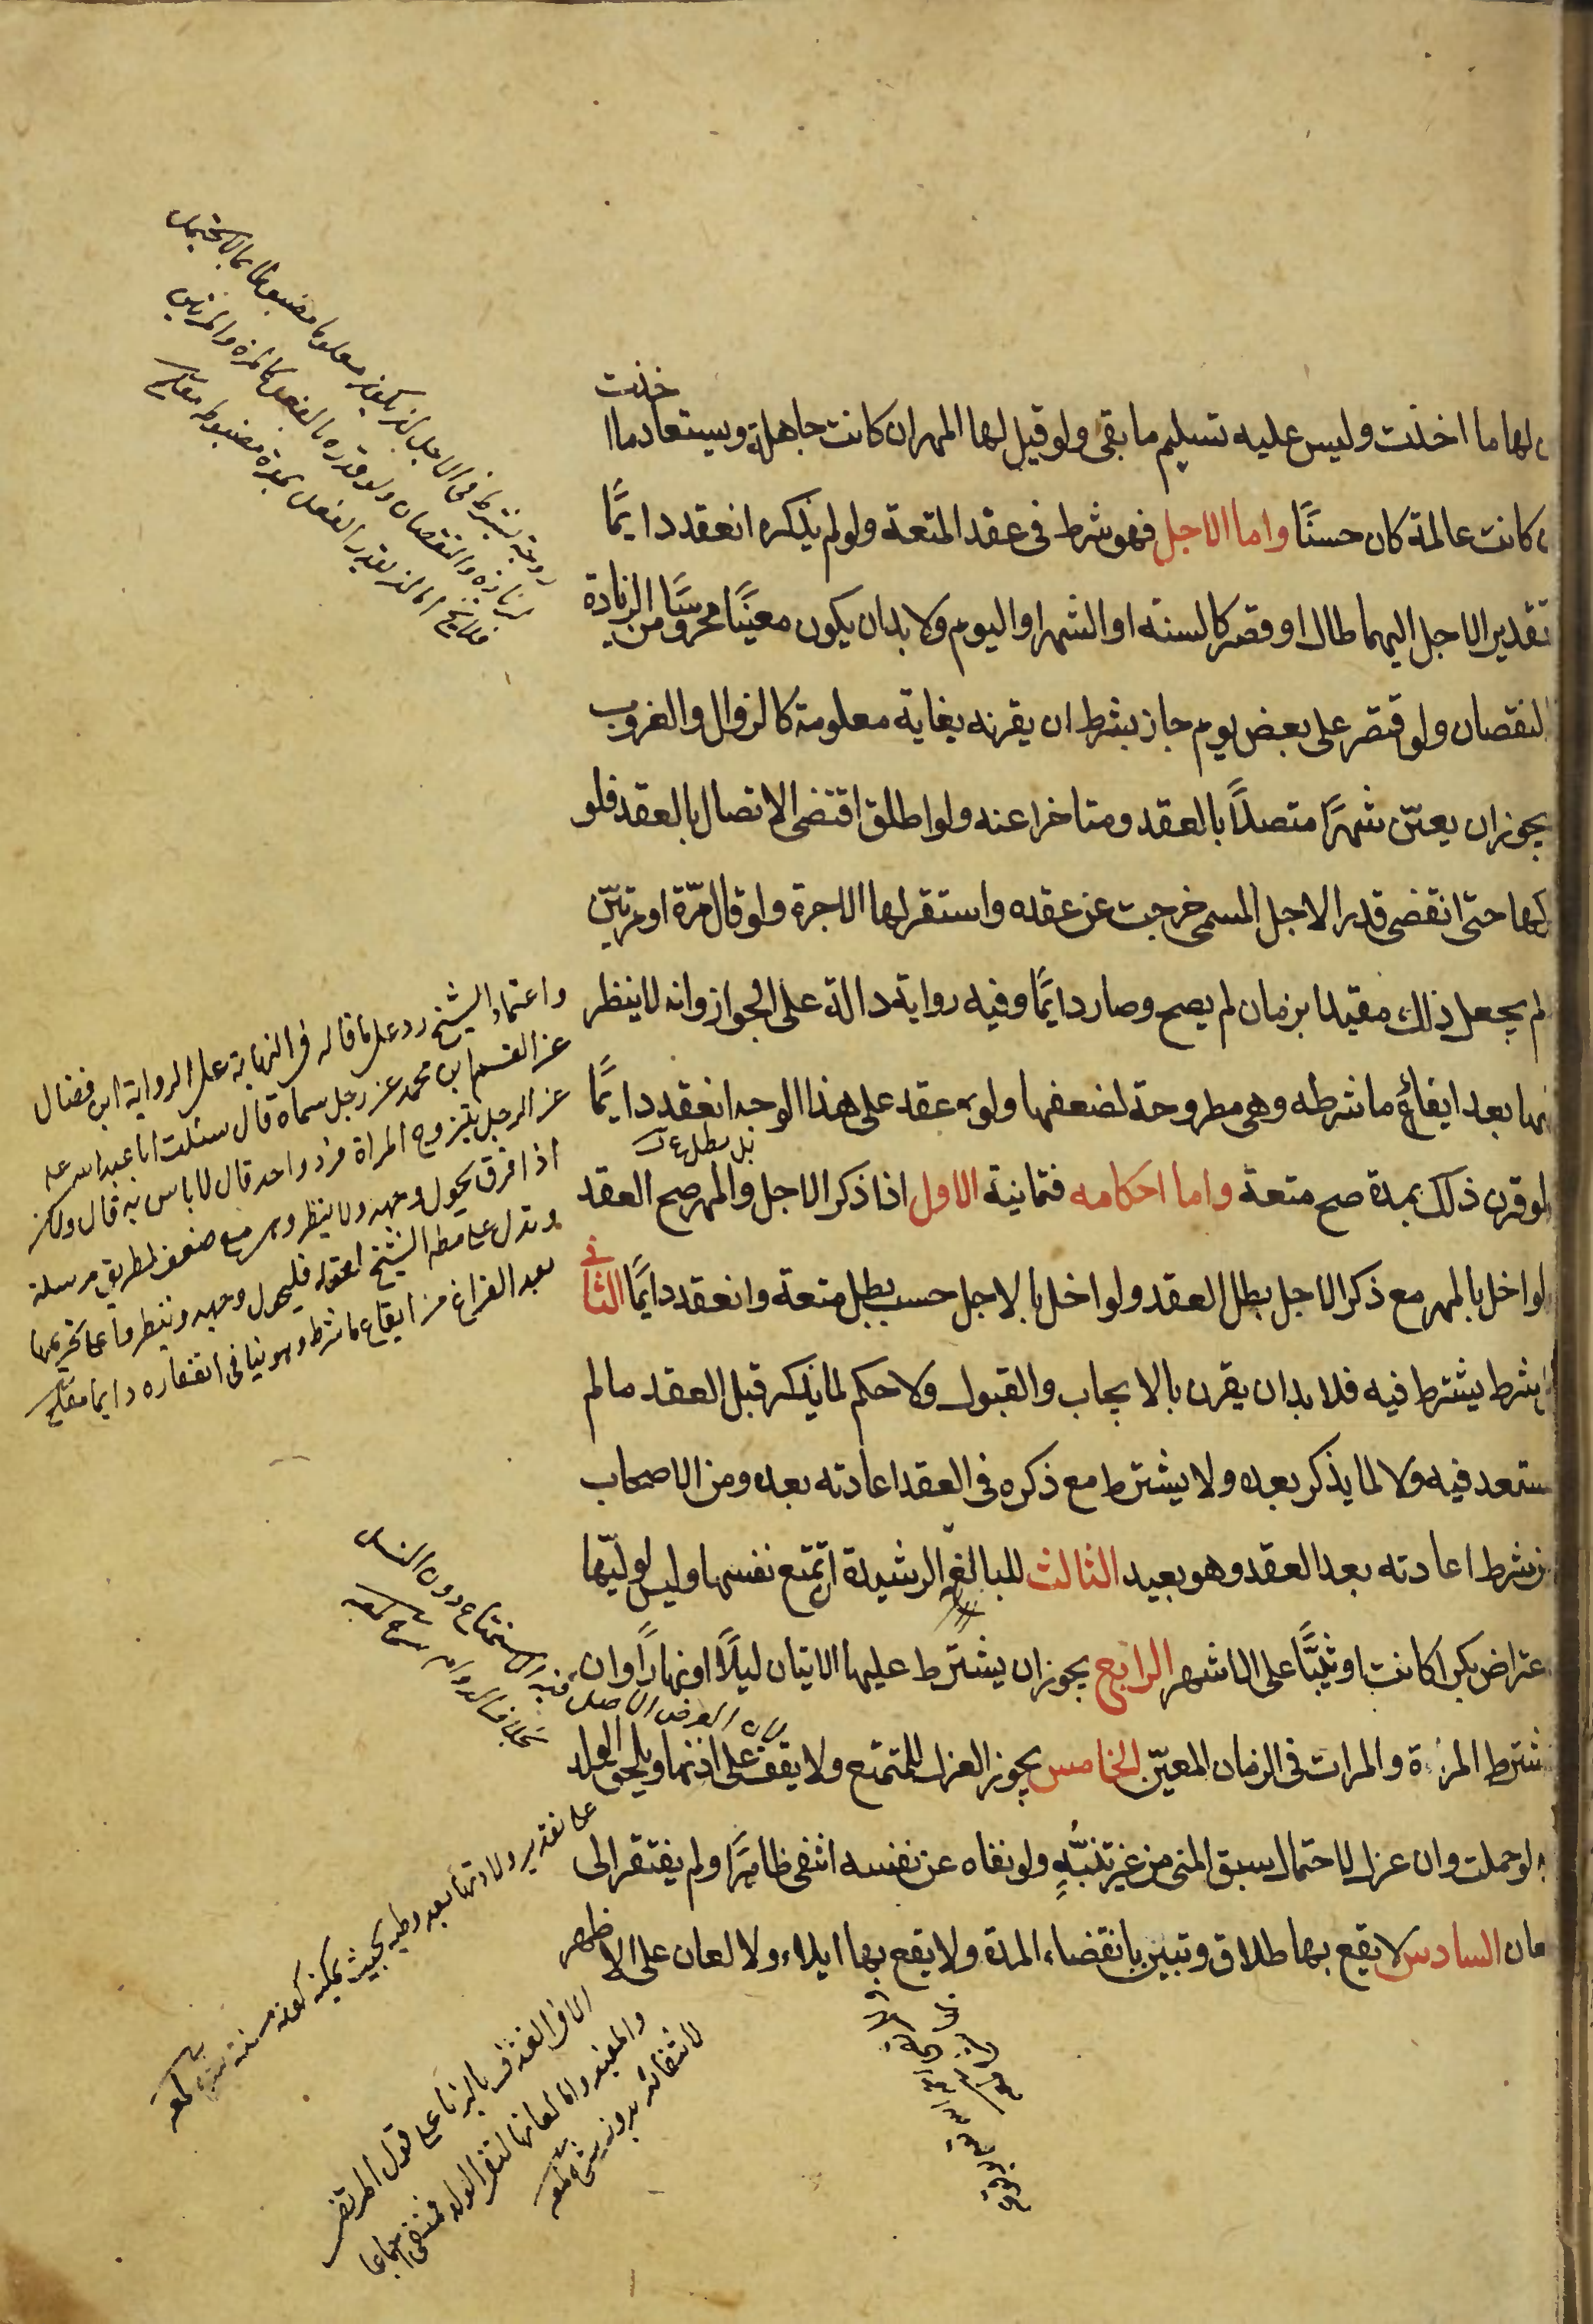 لها ما اخذت وليس عليه تسليم ما بقى ولو قيل لها المهر ان كانت جاهلة ويستعاد ما ا
خذت
كانت عالمة كان حسنًا واما الاجل فهو شرط فى عقد المتعة ولو لم يذكره انعقد دايمًا
تقدير الاجل اليهما طال او قصر كالسنه او الشهر او اليوم ولا بد ان يكون معينًا محروسًا من الزيادة
النقصان ولو اقتصر على بعض يوم جاز بشرط ان يقرنه بغاية معلومة كالزوال والغروب
يجوز ان يعيّن شهرًا متصلًا بالعقد ومتاخرا عنه ولو اطلق اقتضى الاتصال بالعقد فلو
كها حتى انقضى قدر الاجل المسمى خرجت عن عقده واستقر لها الاجرة ولو قال مرّة او مرتين
لم يجعل ذلك مقيدا بزمان لم يصح وصار دايمًا وفيه رواية دالة على الجواز وانه لا ينظر
يها بعد ايقاع ما شرطه وهى مطروحة لضعفها ولو عقد على هذا الوجه انعقد دايمًا
بل يبطل
لو قرن ذلك بمدة صح متعة واما احكامه فثمانية الاول اذا ذكر الاجل والمهر صح العقد
لو اخل بالمهر مع ذكر الاجل بطل العقد ولو اخل بالاجل حسب بطل متعة وانعقد دايمًا الثا
نى
شرط يشترط فيه فلا بد ان يقرن بالايجاب والقبول ولا حكم لما يذكر قبل العقد ما لم
ستعد فيه ولا لما يذكر بعده ولا يشترط مع ذكره فى العقد اعادته بعده ومن الاصحاب
ن شرط اعادته بعد العقد وهو بعيد الثالث للبالغة الرشيدة ان تمتع نفسها وليس لوليّها
عتراض بكرا كانت او ثيّبًا على الاشهر الرابع يجوز ان يشترط عليها الاتيان ليلًا او نهارًا وان
شترط المرّة والمرات فى الزمان المعيّن الخامس يجوز العزل للمتمتع ولا يقف على اذنها ويلحق الولد
لو حملت وان عزل لاحتمال سبق المنى من غير تنبّهٍ ولو نفاه عن نفسه انتفى ظاهرًا ولم يفتقر الى
عان السادس لا يقع بها طلاق وتبين بانقضاء المدة ولا يقع بها ايلاء ولا لعان على الاظهر
يشترط فى الاجل ان يكون معلوما مضبوطا بما لا يحتمل
الزيادة والنقصان ولو قدره بالفعل كالمرة والمرتين
واعتماد الشيخ رد على ما قاله فى النهاية على الرواية ابن فضال
عن القسم ابن محمد عن رجل سماه قال سئلت ابا عبد الله عليه
عن الرجل يتزوج المراة فرد واحد قال لا باس به قال ولكن
اذا افرق يحول وجهه ولا ينظر وهى مع ضعف طريق مرسلة
وتدل على الشيخ لقوله فليحول وجهه وينظر على تحريمها
بعد الفراغ من ايقاع ما شرط وهو ينافى انعقاده دايما
لان الغرض الاصلى فيه الاستمتاع دون النسل
بخلاف الدوام
على تقدير ولادتها بعد وطيه بحيث يمكن كونه منه
الا فى القذف بالزنا على قول المرتضى
والمفيد واما لعانها لنفى الولد فمنتفى اجماعا
لانتفائه بدونه